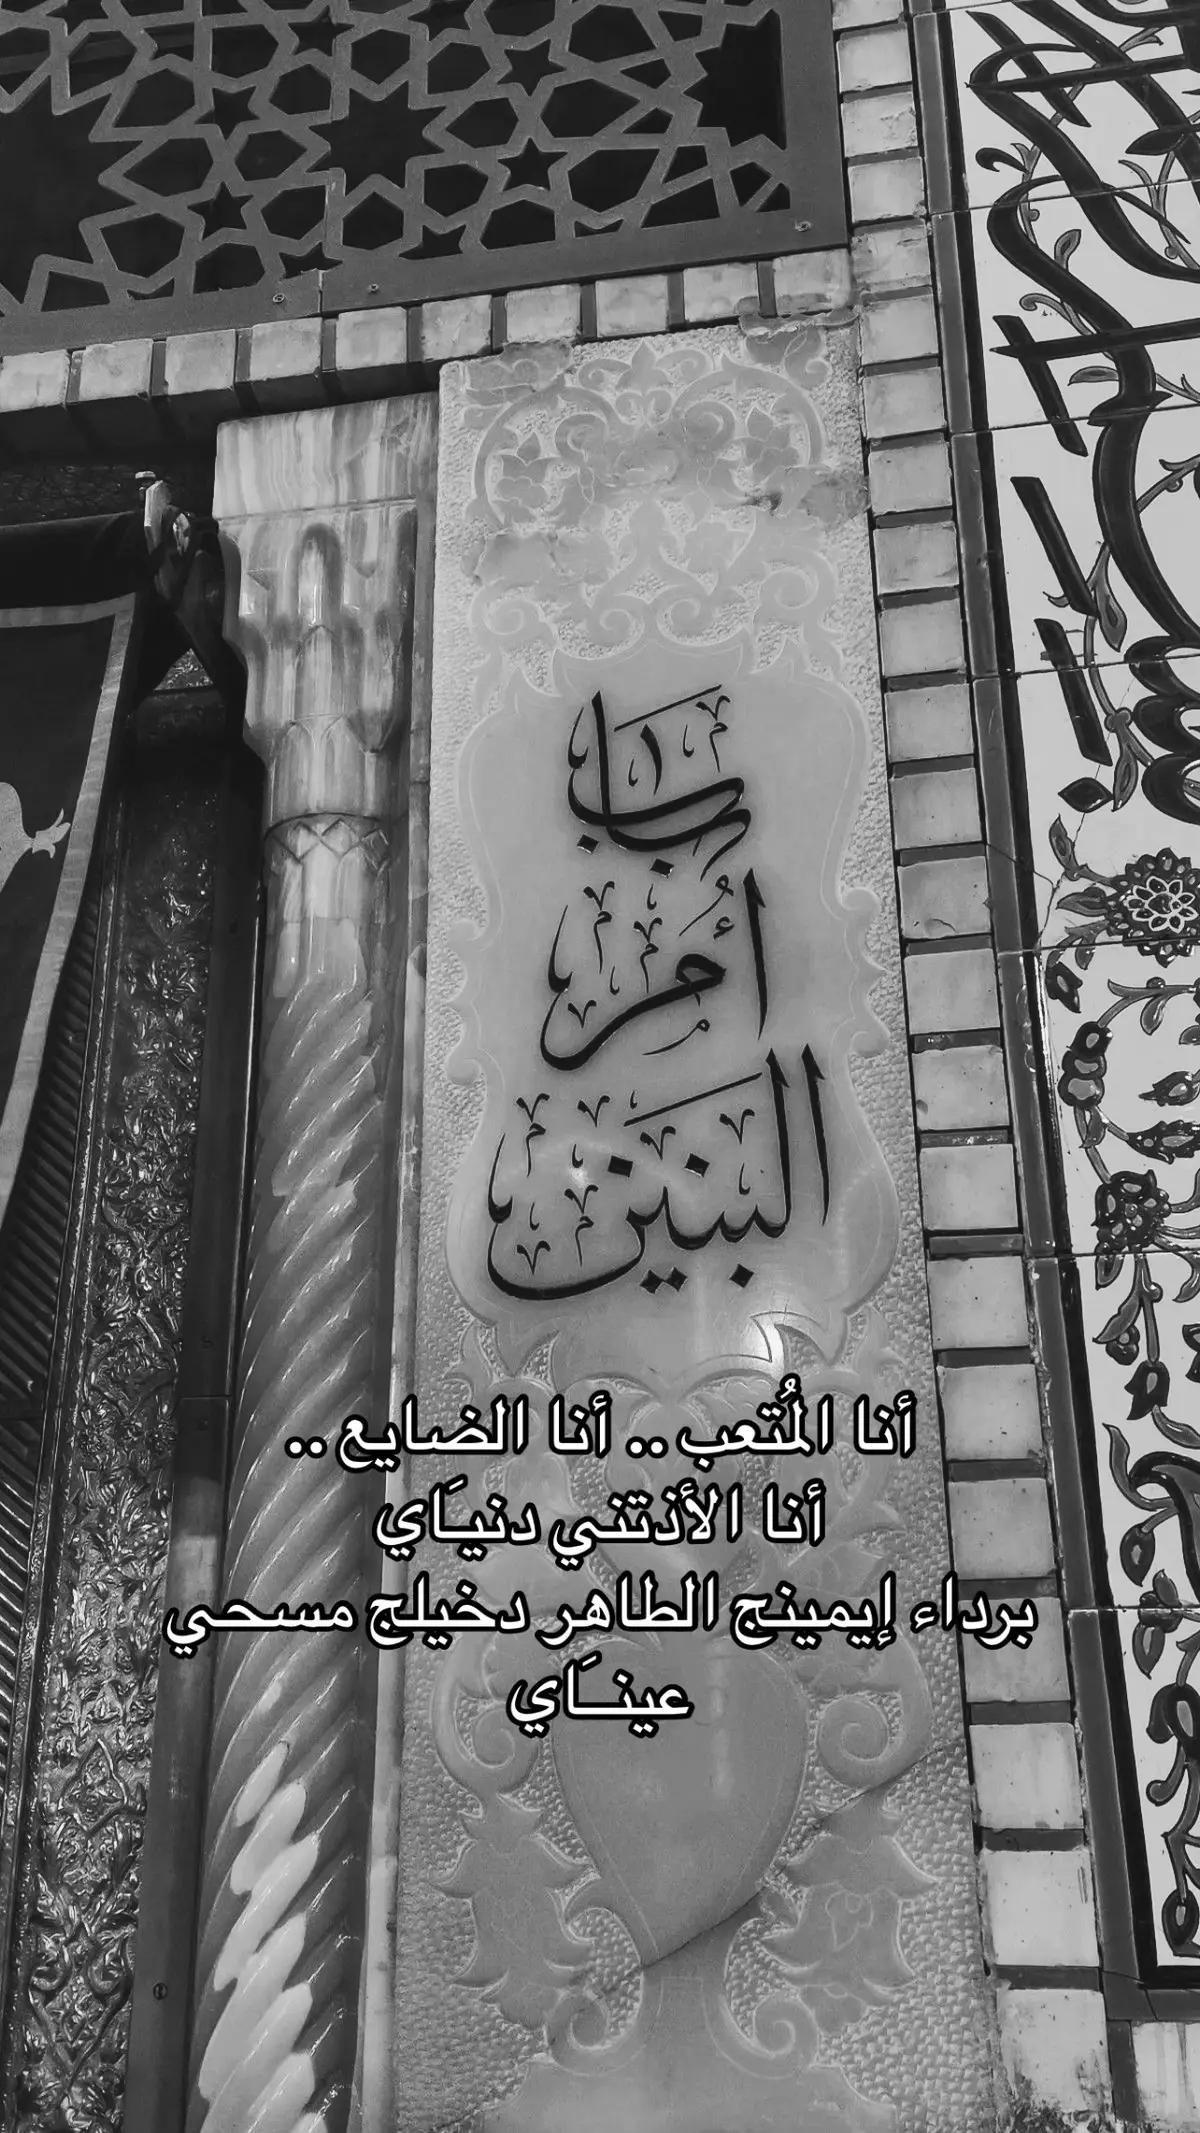 باب
أُم
البنين
أنا المُتعب .. أنا الضايع ..
أنا الأذتني دنيَـاي
برداء إيمينج الطاهر دخيلج مسحي
عينـَـاي